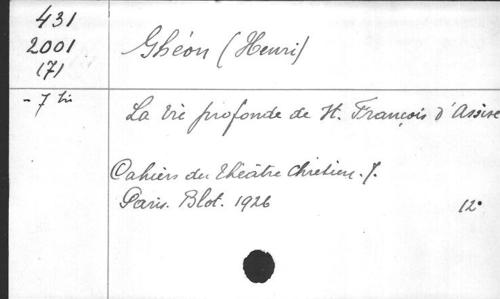 431
2001
(7)
Ghéon (Henri)
- 7 bis
La Vie profonde de St. François d'Assise
Cahiers du théâtre chrétien. 7.
Paris. Blot. 1926
12°